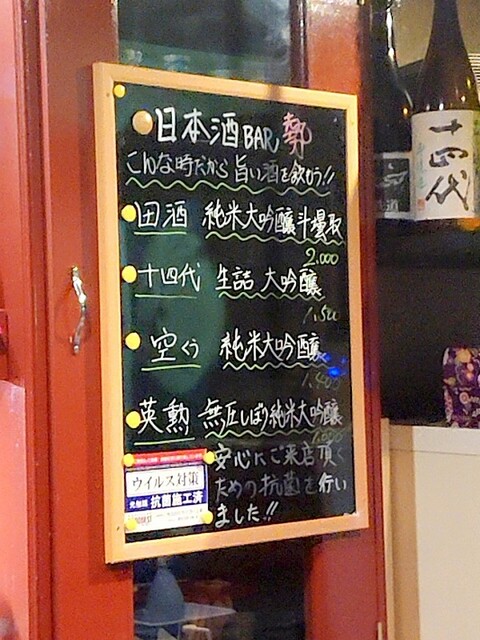 日本酒BAR 勢
こんな時だから旨い酒を飲もう!!
田酒 純米大吟醸斗壜取
2.000
十四代 生詰 大吟醸
1,500
空くう 純米大吟醸
英勲 無圧しぼり純米大吟醸
安心にご来店頂く
ための抗菌を行い
ました!!
ウイルス対策
抗菌施工済
十四代